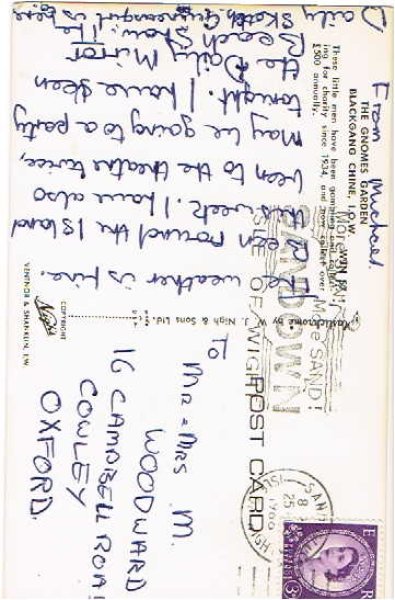 THE GNOMES GARDEN
BLACKGANG CHINE, I.O.W
These little men have been
ing for charity since 1934, and now collect over
£500 annually.
weather is fine.
Been round the Island
this week. I have also
been to the theatre twice,
May be going to a party
tonight. I have seen
the Daily Mirror
Beach Show. The
Daily
Sketch. is here
From Michael.
by W. J. Nigh & Sons Ltd.
COPYRIGHT
Nigh
VENTNOR & SHANKLIN, I.W
POST CARD
More SAND!
SANDOWN
ISLE OF WIGHT
To
Mr & Mrs M.
WOODWARD
16 CAMPBELL ROA
COWLEY
OXFORD.
E R
3D